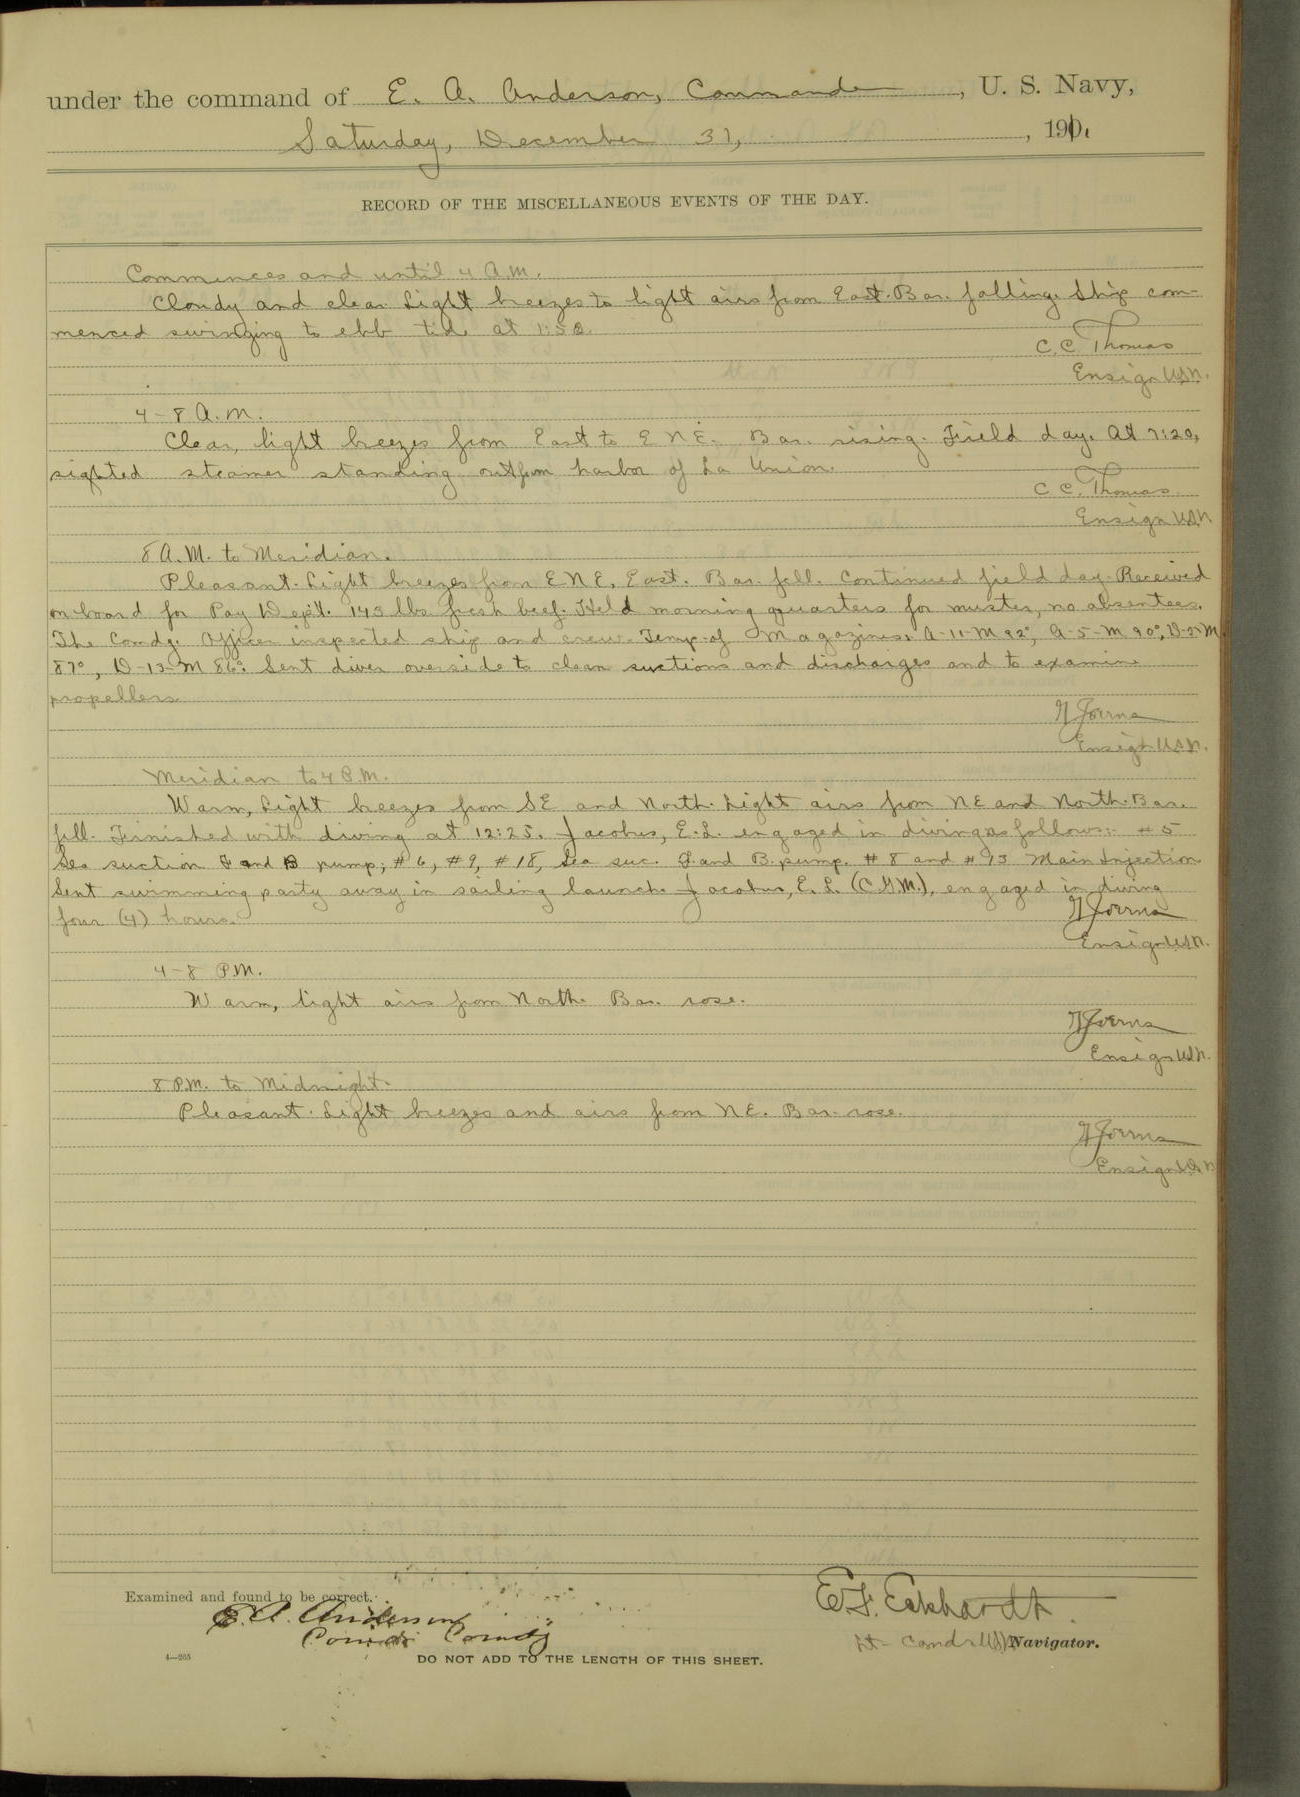 under the command of E. A. Anderson, Commander, U. S. Navy,
Saturday, December 31, , 1910.
RECORD OF THE MISCELLANEOUS EVENTS OF THE DAY.
Commences and until 4 A.M.
Cloudy and clear. Light breezes to light airs from East. Bar. falling. Ship com-
menced swinging to ebb tide at 1:50.
C. C. Thomas
Ensign U.S.N.
4-8 A.M.
Clear, light breezes from East to ENE. Bar. rising. Field day. At 7:20,
sighted steamer standing out from harbor of La Union.
C. C. Thomas
Ensign U.S.N.
8 A.M. to Meridian.
Pleasant. Light breezes from ENE, East. Bar. fell. Continued field day. Received
on board for Pay Dept. 143 lbs fresh beef. Held morning quarters for muster, no absentees.
The Comdg. Officer inspected ship and crew. Temp. of Magazines: A-11-M 92°, A-5-M 90°, D-5-M
87°, D-13-M 86°. Sent diver overside to clean suctions and discharges and to examine
propellers.
Ensign U.S.N.
Meridian to 4 P.M.
Warm, light breezes from SE and North. Light airs from NE and North. Bar.
fell. Finished with diving at 12:25. Jacobus, E.L. engaged in diving as follows: #5
Sea suction F and B pump; #6, #9, #18, Sea suc. F. and B. pump. #8 and #13 Main Injection
Sent swimming party away in sailing launch. Jacobus, E. L. (C.G.M.), engaged in diving
four (4) hours.
Ensign U.S.N.
4-8 P.M.
Warm, light airs from North. Bar. rose.
Ensign U.S.N.
8 P.M. to Midnight.
Pleasant. Light breezes and airs from NE. Bar. rose.
Ensign U.S.N.
Examined and found to be correct.
E. A. Anderson
Comdr. Comdg
E. F. Eckhardt.
Lt-Comdr U.S.N. Navigator.
4—265
DO NOT ADD TO THE LENGTH OF THIS SHEET.